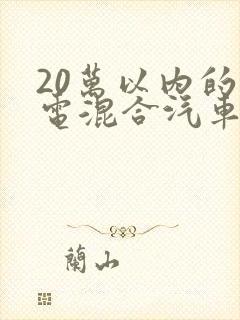 20萬以内的
電混合汽車
蘭山